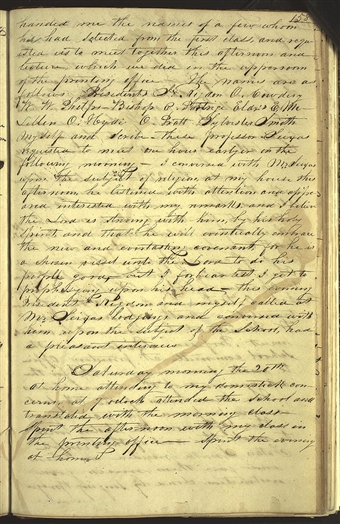 152
handed me the names of a few whom
he had selected from the first class, and requ-
ested us to meet together this afternoon and
lecture which we did in the upper room
of the printing office The names are as
follows Presidents S. Rigdon O. Cowdery
W. W. Phelps Bishop E. Partridge Elders E. Mc
Lellin O. Hyde O. Pratt Sylvester Smith
Myself and Scribe these professor Seixas
requested to meet one hour earlyer on the
following morning — I conversed with Mr Seixas
upon the subject of religion, at my house this
afternoon, he listened with attention and appe-
ared interested with my remarks, and I believe
the Lord is striving with him, by his holy
Spirit, and that he will eventually embrace
the new and everlasting covenant, for he is
a chosen vessel unto the Lord to do his
people good, — but I forbear lest I get to
prophesying upon his head — this evening
President Rigdon and myself called at
Mr Seixas lodgings and conversed with
him upon the subject of the School, had
a pleasant interview
Saturday morning the 20th
at home attending to my domestick con-
cerns, at 9 oclock attended the School and
translated with the morning class —
Spent the afternoon with my class in
the printing office — Spent the evening
at home